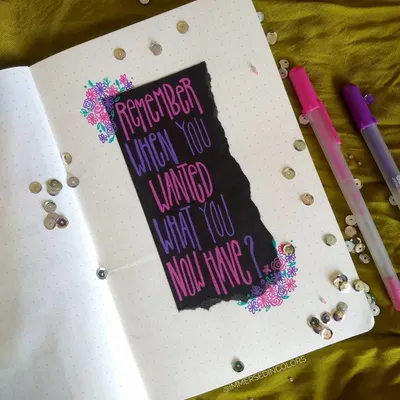 REMEMBER
WHEN YOU
WANTED
WHAT YOU
NOW HAVE?
@IMMERSEDINCOLORS